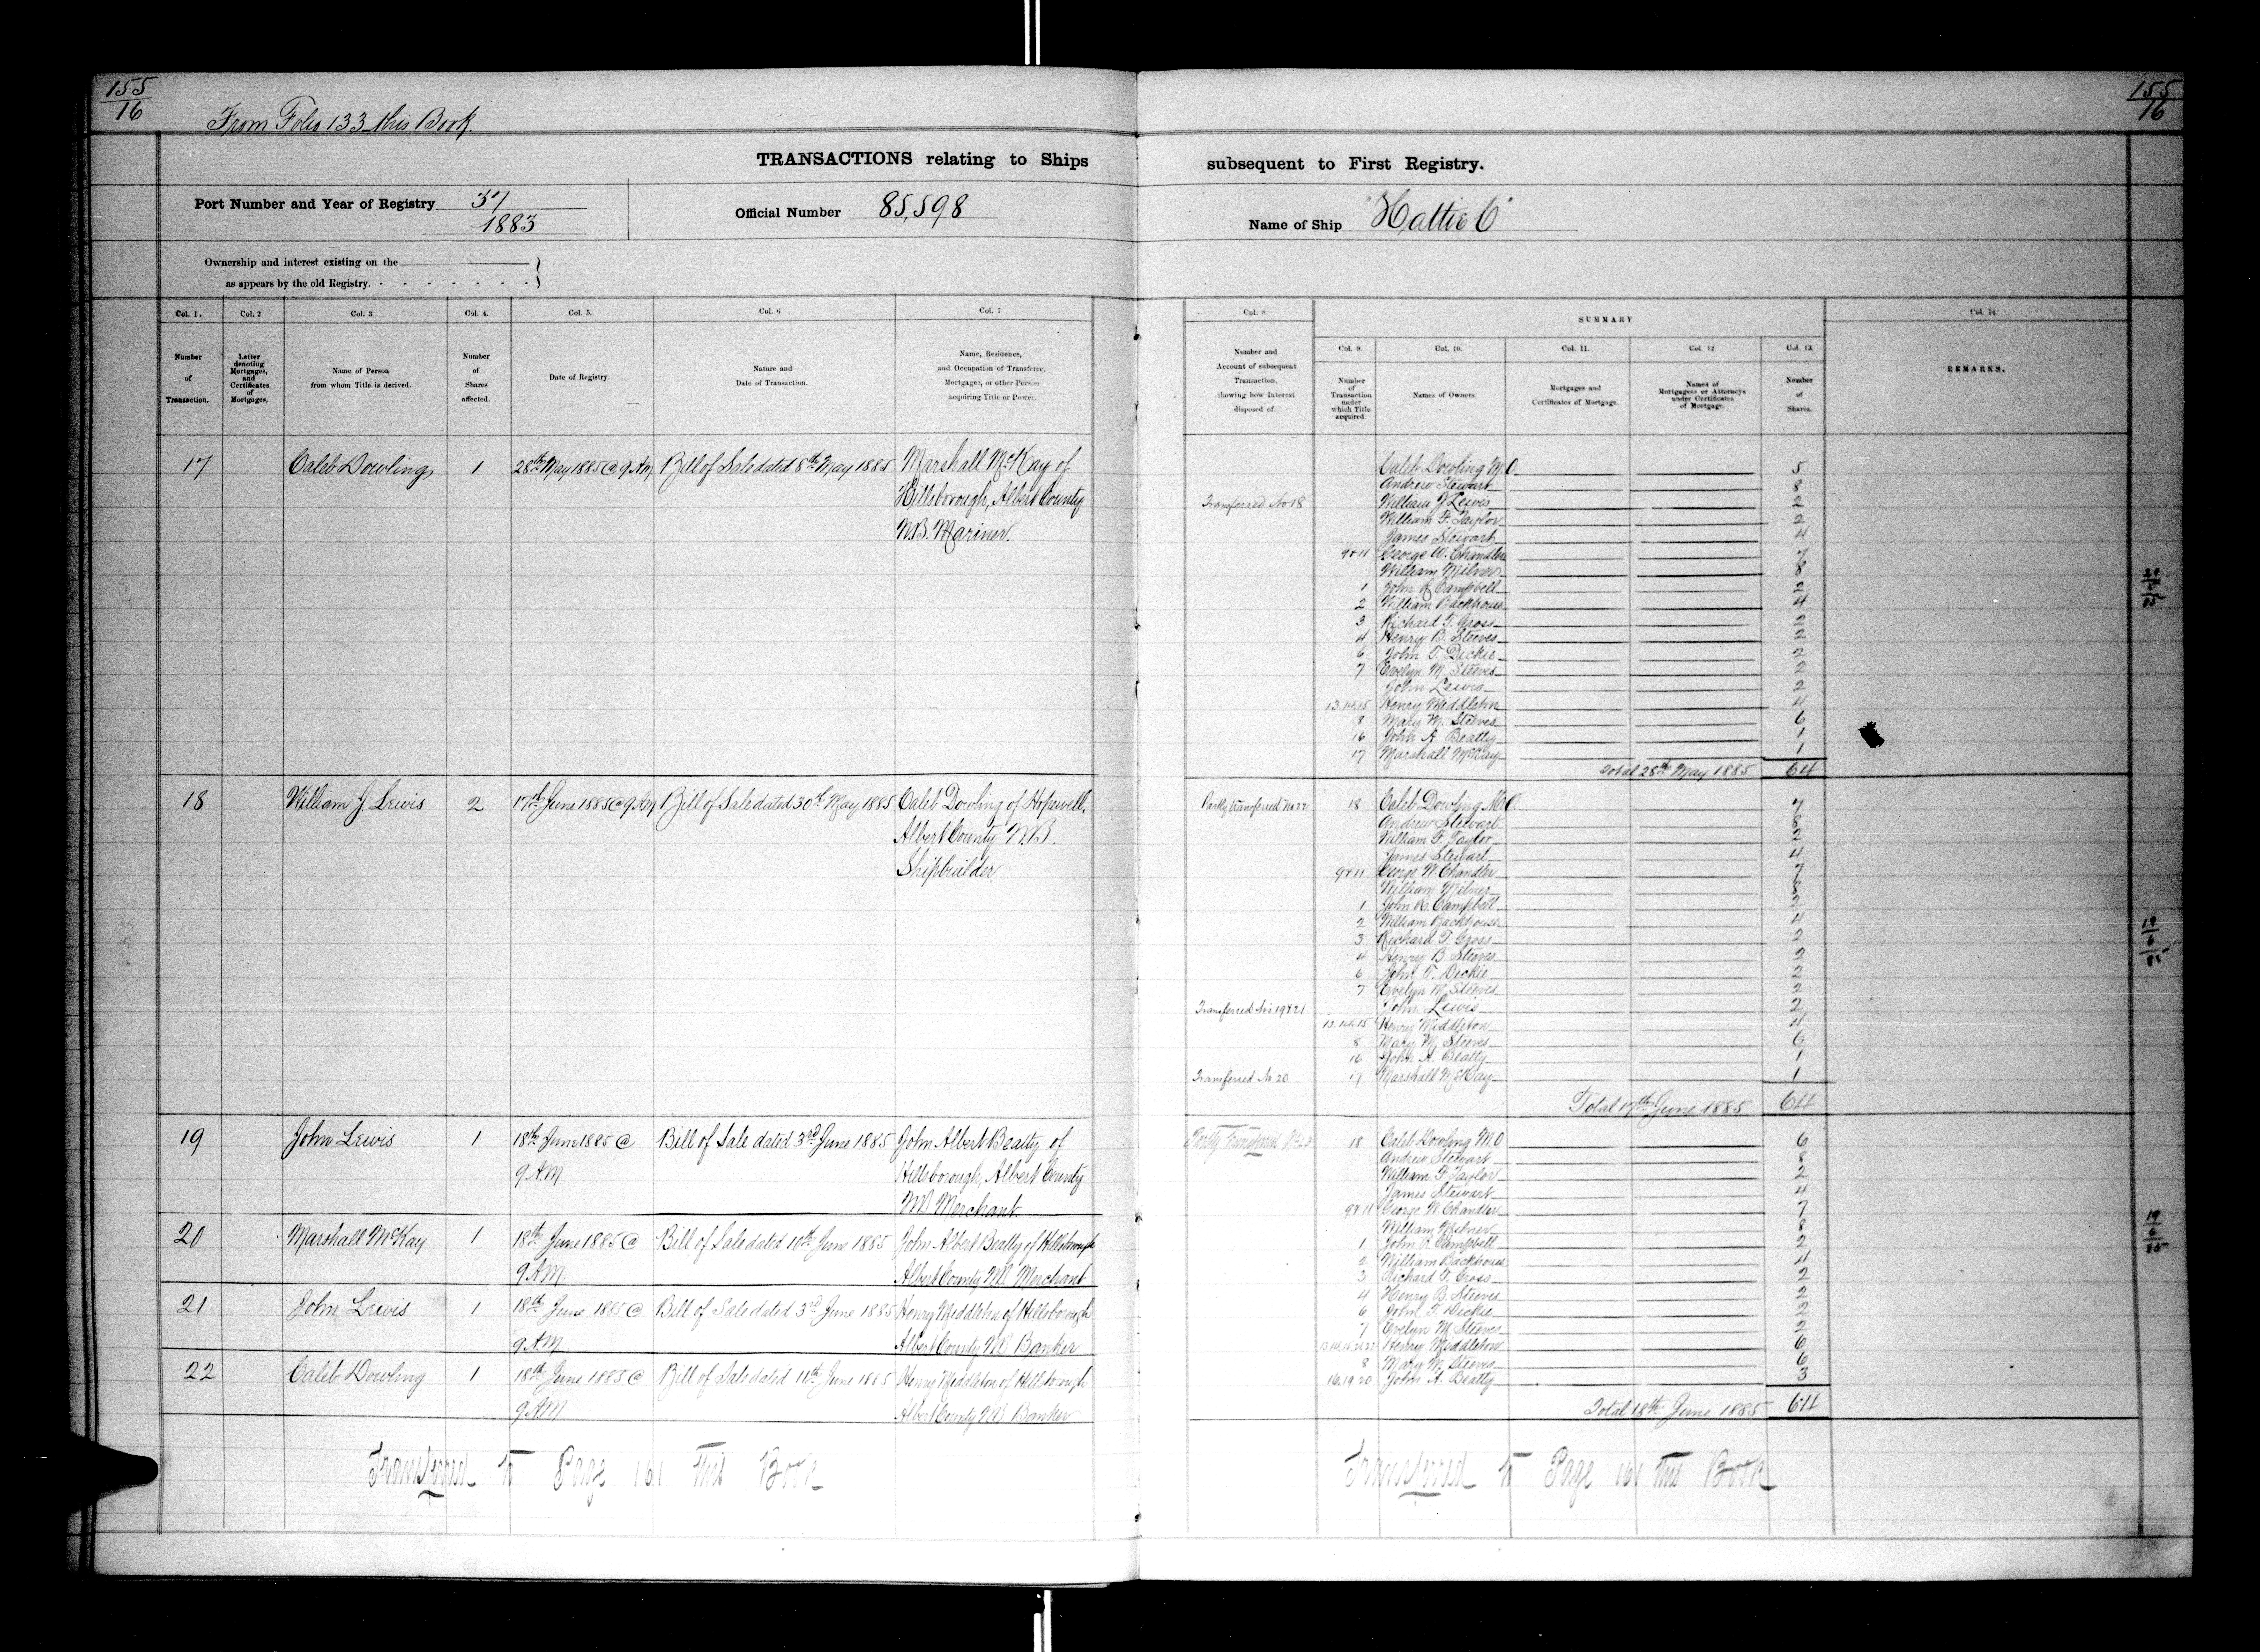 155
16
From Folio 133 this Book.
155
16
TRANSACTIONS relating to Ships
subsequent to First Registry.
Port Number and Year of Registry 37
1883
Official Number 85,598
Name of Ship "Hattie C"
Ownership and interest existing on the
as appears by the old Registry.
Col. 1.
Number
of
Transaction.
Col. 2
Letter
denoting
Mortgages,
and
Certificates
of
Mortgages.
Col. 3
Name of Person
from whom Title is derived.
Col. 4.
Number
of
Shares
affected.
Col. 5.
Date of Registry.
Col. 6
Nature and
Date of Transaction.
Col. 7
Name, Residence,
and Occupation of Transferee,
Mortgagee, or other Person
acquiring Title or Power.
Col. 8.
Number and
Account of subsequent
Transaction,
showing how Interest
disposed of.
SUMMARY
Col. 9.
Number
of
Transaction
under
which Title
acquired.
Col. 10.
Names of Owners.
Col. 11.
Mortgages and
Certificates of Mortgage.
Col. 12
Names of
Mortgagees or Attorneys
under Certificates
of Mortgage.
Col. 13.
Number
of
Shares.
Col. 14.
REMARKS.
17 Caleb Dowling 1 28th May 1885 @ 9 AM Bill of Sale dated 8th May 1885 Marshall McKay of
Hillsborough, Albert County
N.B. Mariner.
Caleb Dowling M.O 5
Andrew Stewart 8
Transferred No 18 William J Lewis 2
William F. Taylor 2
James Stewart 4
9 & 11 George W. Chandler 7
William Milner 8
1 John R Campbell 2
2 William Backhouse 4
3 Richard T. Gross 2
4 Henry B. Steeves 2
6 John T. Dickie 2
7 Evelyn M. Steeves 2
John Lewis 2
13.14.15 Henry Middleton 4
8 Mary M. Steeves 6
16 John A. Beatty 1
17 Marshall McKay 1
Total 28th May 1885 64
18 William J Lewis 2 17th June 1885 @ 9 AM Bill of Sale dated 30th May 1885 Caleb Dowling of Hopewell,
Albert County N.B.
Shipbuilder
Partly transferred No 22 18 Caleb Dowling M.O. 7
Andrew Stewart 8
William F. Taylor 2
James Stewart 4
9 & 11 George W. Chandler 7
William Milner 8
1 John R. Campbell 2
2 William Backhouse 4
3 Richard T. Gross 2
4 Henry B. Steeves 2
6 John T. Dickie 2
7 Evelyn M. Steeves 2
Transferred Nos 19 & 21 John Lewis 2
13.14.15 Henry Middleton 4
8 Mary M. Steeves 6
16 John A. Beatty 1
Transferred No 20 17 Marshall McKay 1
Total 17th June 1885 64
19 John Lewis 1 18th June 1885 @ Bill of Sale dated 3rd June 1885 John Albert Beatty of
9 AM Hillsborough, Albert County
NB Merchant
20 Marshall McKay 1 18th June 1885 @ Bill of Sale dated 10th June 1885 John Albert Beatty of Hillsborough
9 AM. Albert County NB Merchant
21 John Lewis 1 18th June 1885 @ Bill of Sale dated 3rd June 1885 Henry Middleton of Hillsborough
9 AM Albert County NB Banker
22 Caleb Dowling 1 18th June 1885 @ Bill of Sale dated 11th June 1885 Henry Middleton of Hillsborough
9 AM Albert County NB Banker
Partly Transferred No 23 18 Caleb Dowling M.O 6
Andrew Stewart 8
William F. Taylor 2
James Stewart 4
9 & 11 George W. Chandler 7
William Milner 8
1 John R. Campbell 2
2 William Backhouse 4
3 Richard T. Gross 2
4 Henry B. Steeves 2
6 John T. Dickie 2
7 Evelyn M. Steeves 2
13.14.15.21.22 Henry Middleton 6
8 Mary M. Steeves 6
16.19 20 John A. Beatty 3
Total 18th June 1885 64
19
6
85
19
6
85
Transferred to Page 161 this Book
Transferred to Page 161 this Book